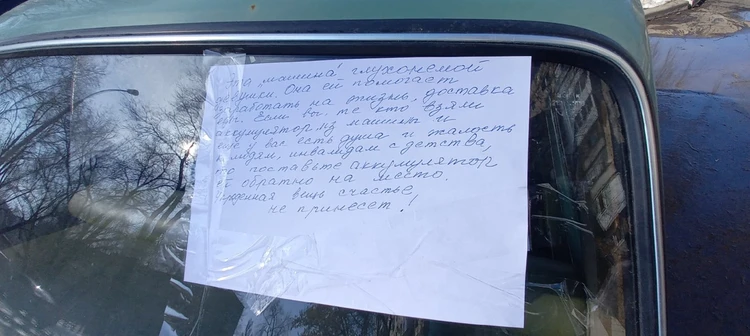 Эта машина глухонемой
девушки. Она ей помогает
заработать на жизнь, доставка
Если вы, те кто взяли
аккумулятор из машины и
еще у вас есть душа и жалость
к людям, инвалидам с детства,
то поставьте аккумулятор
обратно на место.
Краденная вещь счастье
не принесет!